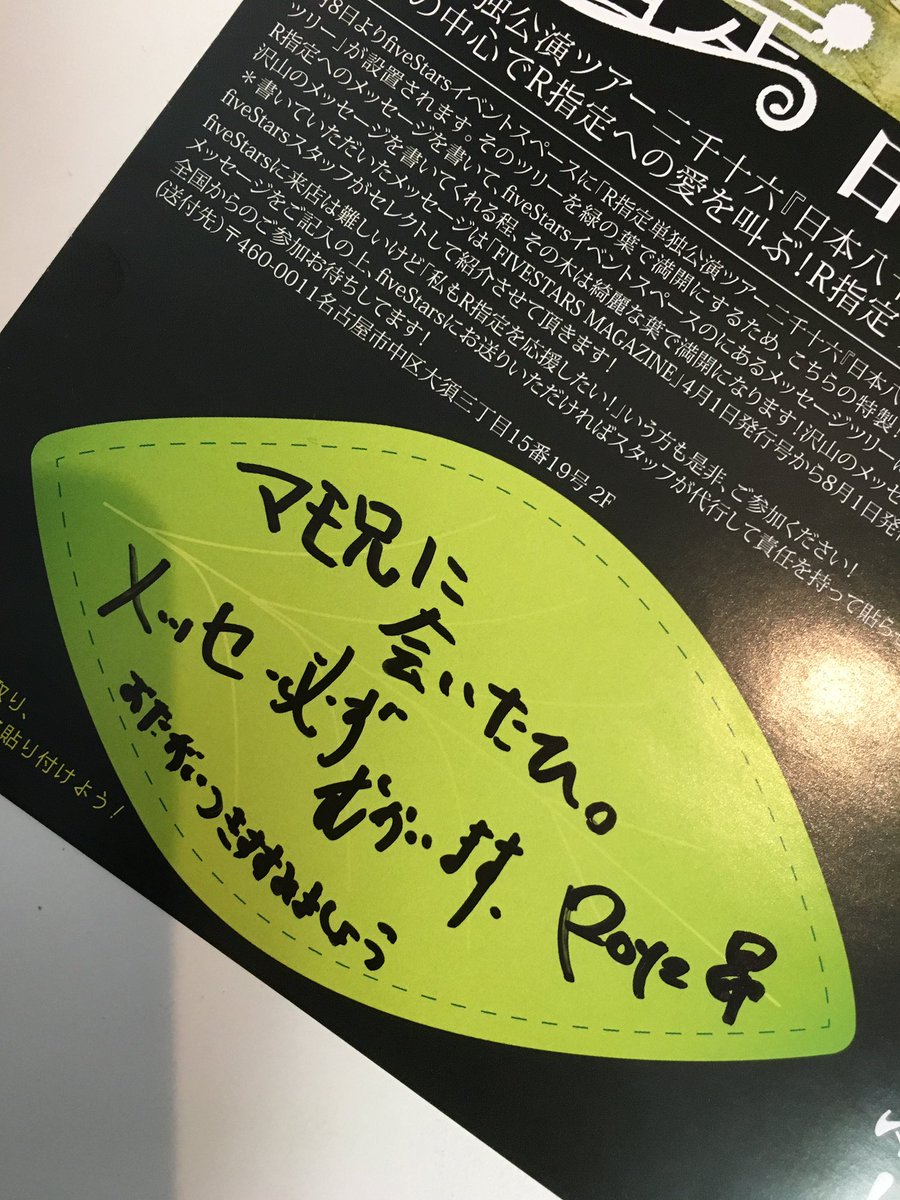 独公演ツアー二千十六『日本八
の中心でR指定への愛を叫ぶ！R指定
月8日よりfiveStarsイベントスペースに「R指定単独公演ツアー二千十六『日本八
ツリー」が設置されます。そのツリーを緑の葉で満開にするため、こちらの特製
R指定へのメッセージを書いて、fiveStarsイベントスペースのにあるメッセージツリー
沢山のメッセージを書いてくれる程、その木は綺麗な葉で満開になります！沢山のメッセ
＊書いていただいたメッセージは「FIVESTARS MAGAZINE」4月1日発行号から8月1日発行
fiveStarsスタッフがセレクトして紹介させて頂きます！
fiveStarsに来店は難しいけど「私もR指定を応援したい！」いう方も是非、ご参加ください！
メッセージをご記入の上、fiveStarsにお送りいただければスタッフが代行して責任を持って貼ら
全国からのご参加お待ちしてます！
(送付先)〒460-0011名古屋市中区大須三丁目15番19号 2F
マモ兄に
会いたひ。
メッセ必ず
おたがいつきすすみましょう
Royz 昴
取り、
に貼り付けよう！